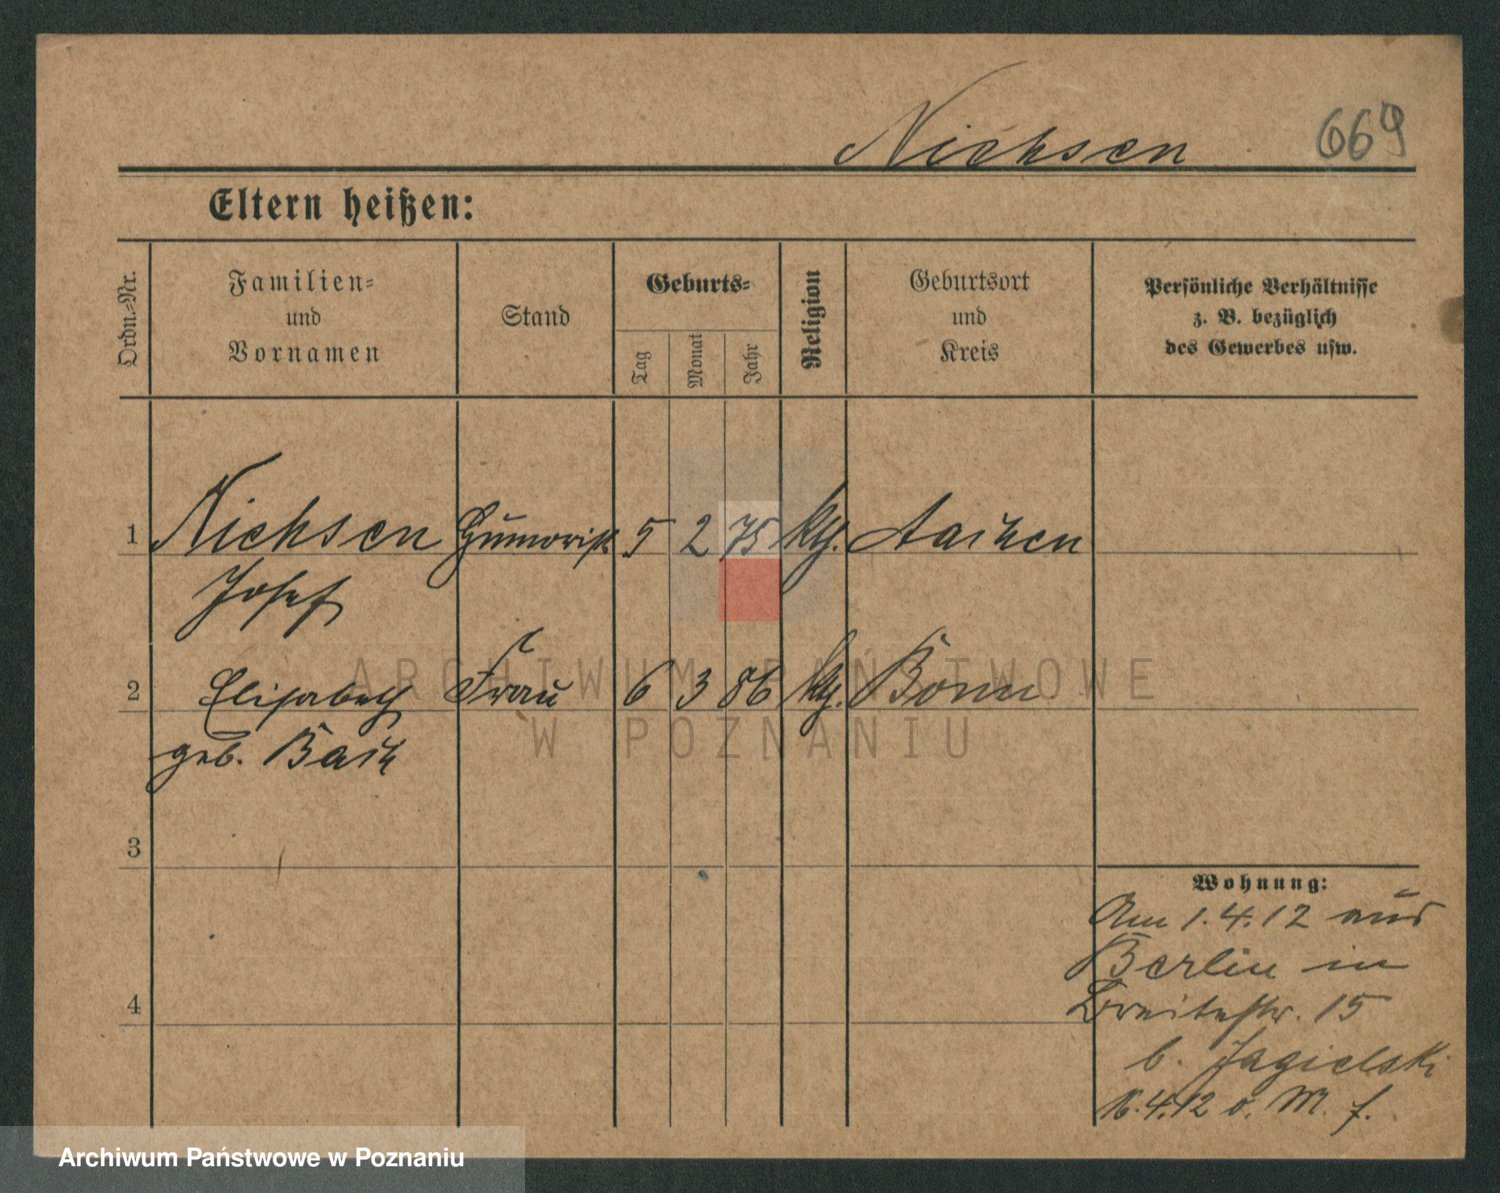 Nieksen 669
Eltern heißen:
Ordn.-Nr.
Familien-
und
Vornamen
Stand
Geburts-
Tag
Monat
Jahr
Religion
Geburtsort
und
Kreis
Persönliche Verhältnisse
z. B. bezüglich
des Gewerbes usw.
1 Nieksen Humorist 5 2 75 kth. Aachen
Josef
2 Elisabeth Frau 6 3 86 kth. Bonn
geb. Bach
3
4
Wohnung:
Am 1.4.12 aus
Berlin in
Breitestr. 15
b. Jagielski
16.4.12 o. M. f.
ARCHIWUM PAŃSTWOWE
W POZNANIU
Archiwum Państwowe w Poznaniu